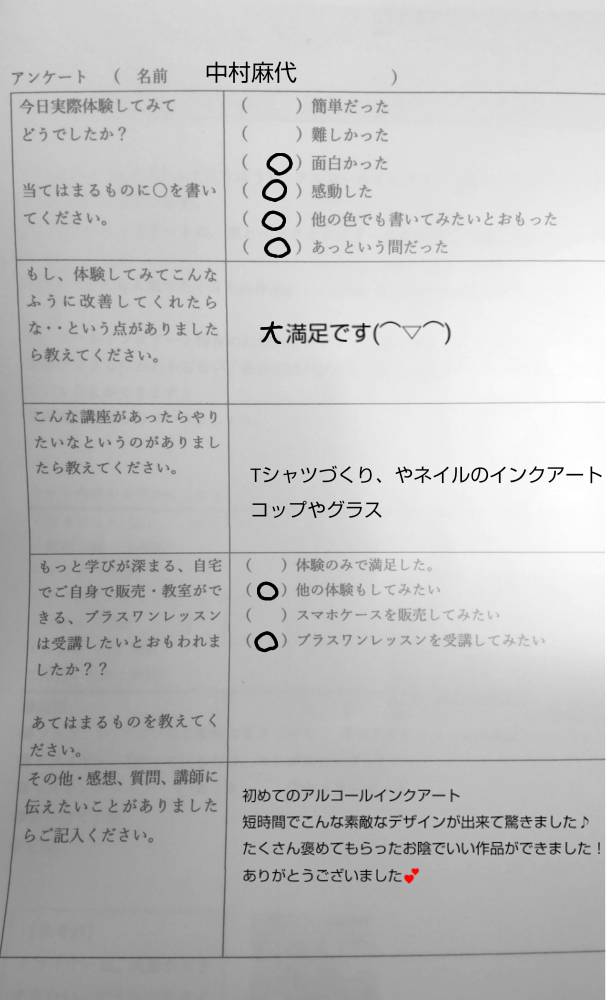 アンケート （ 名前 中村麻代 ）
今日実際体験してみて
どうでしたか？
当てはまるものに〇を書い
てください。
（ ）簡単だった
（ ）難しかった
（ 〇 ）面白かった
（ 〇 ）感動した
（ 〇 ）他の色でも書いてみたいとおもった
（ 〇 ）あっという間だった
もし、体験してみてこんな
ふうに改善してくれたら
な・・という点がありました
ら教えてください。
大満足です(⌒▽⌒)
こんな講座があったらやり
たいなというのがありまし
たら教えてください。
Tシャツづくり、やネイルのインクアート
コップやグラス
もっと学びが深まる、自宅
でご自身で販売・教室がで
きる、プラスワンレッスン
は受講したいとおもわれま
したか？？
あてはまるものを教えてく
ださい。
（ ）体験のみで満足した。
（〇）他の体験もしてみたい
（ ）スマホケースを販売してみたい
（〇）プラスワンレッスンを受講してみたい
その他・感想、質問、講師に
伝えたいことがありました
らご記入ください。
初めてのアルコールインクアート
短時間でこんな素敵なデザインが出来て驚きました♪
たくさん褒めてもらったお陰でいい作品ができました！
ありがとうございました💕